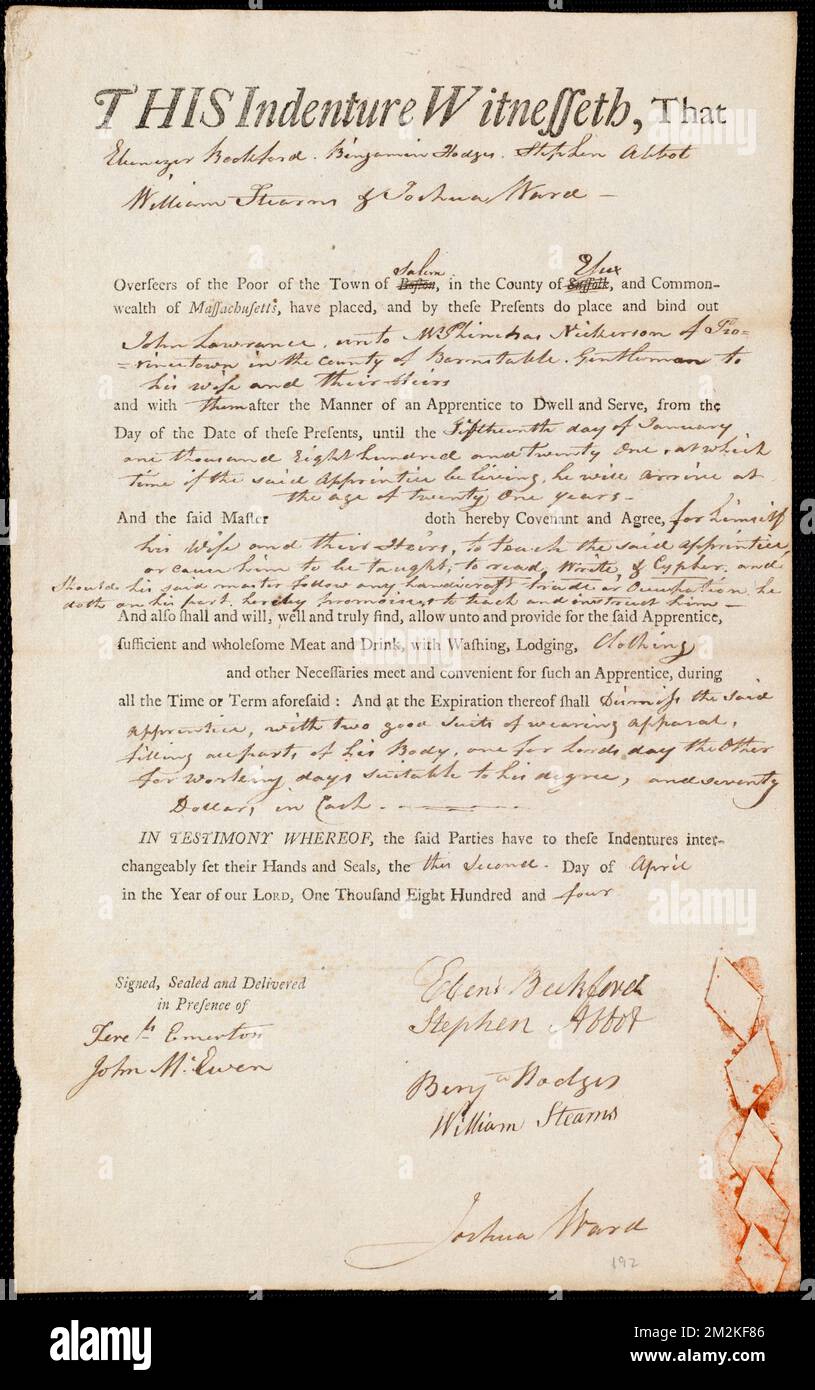 THIS Indenture Witnesseth, That
Ebenezer Beckford. Benjamin Hodges. Stephen Abbot
William Stearns & Joshua Ward —
Salem Essex
Overseers of the Poor of the Town of Boston, in the County of Suffolk, and Common-
wealth of Massachusetts, have placed, and by these Presents do place and bind out
John Lawrance, unto Mr Phinehas Nickerson of Pro=
=vincetown in the County of Barnstable. Gentleman to
his wife and their Heirs
and with them after the Manner of an Apprentice to Dwell and Serve, from the
Day of the Date of these Presents, until the Fifteenth day of January
one thousand Eight hundred and twenty One, at which
time if the said Apprentice be living, he will arrive at
the age of twenty One years —
And the said Master doth hereby Covenant and Agree, for himself
his Wife and their Heirs, to teach the said apprentice,
or cause him to be taught, to read, Write, & Cypher. and
Should his said master follow any handicraft trade or Occupation he
doth on his part hereby promise, to teach and instruct him —
And also shall and will, well and truly find, allow unto and provide for the said Apprentice,
sufficient and wholesome Meat and Drink, with Washing, Lodging, Clothing
and other Necessaries meet and convenient for such an Apprentice, during
all the Time or Term aforesaid: And at the Expiration thereof shall Dismiss the said
apprentice, with two good suits of wearing apparal,
fitting all parts of his Body, one for Lords day the Other
for working days suitable to his degree, and seventy
Dollars, in Cash. —
IN TESTIMONY WHEREOF, the said Parties have to these Indentures inter-
changeably set their Hands and Seals, the this Second. Day of April
in the Year of our LORD, One Thousand Eight Hundred and four
Signed, Sealed and Delivered
in Presence of
Jere h Emerton
John McEwen
Eben r Beckford
Stephen Abbot
Benj a Hodges
William Stearns
Joshua Ward
192
alamy
alamy
alamy
alamy
Image ID: 2M2KF86
www.alamy.com